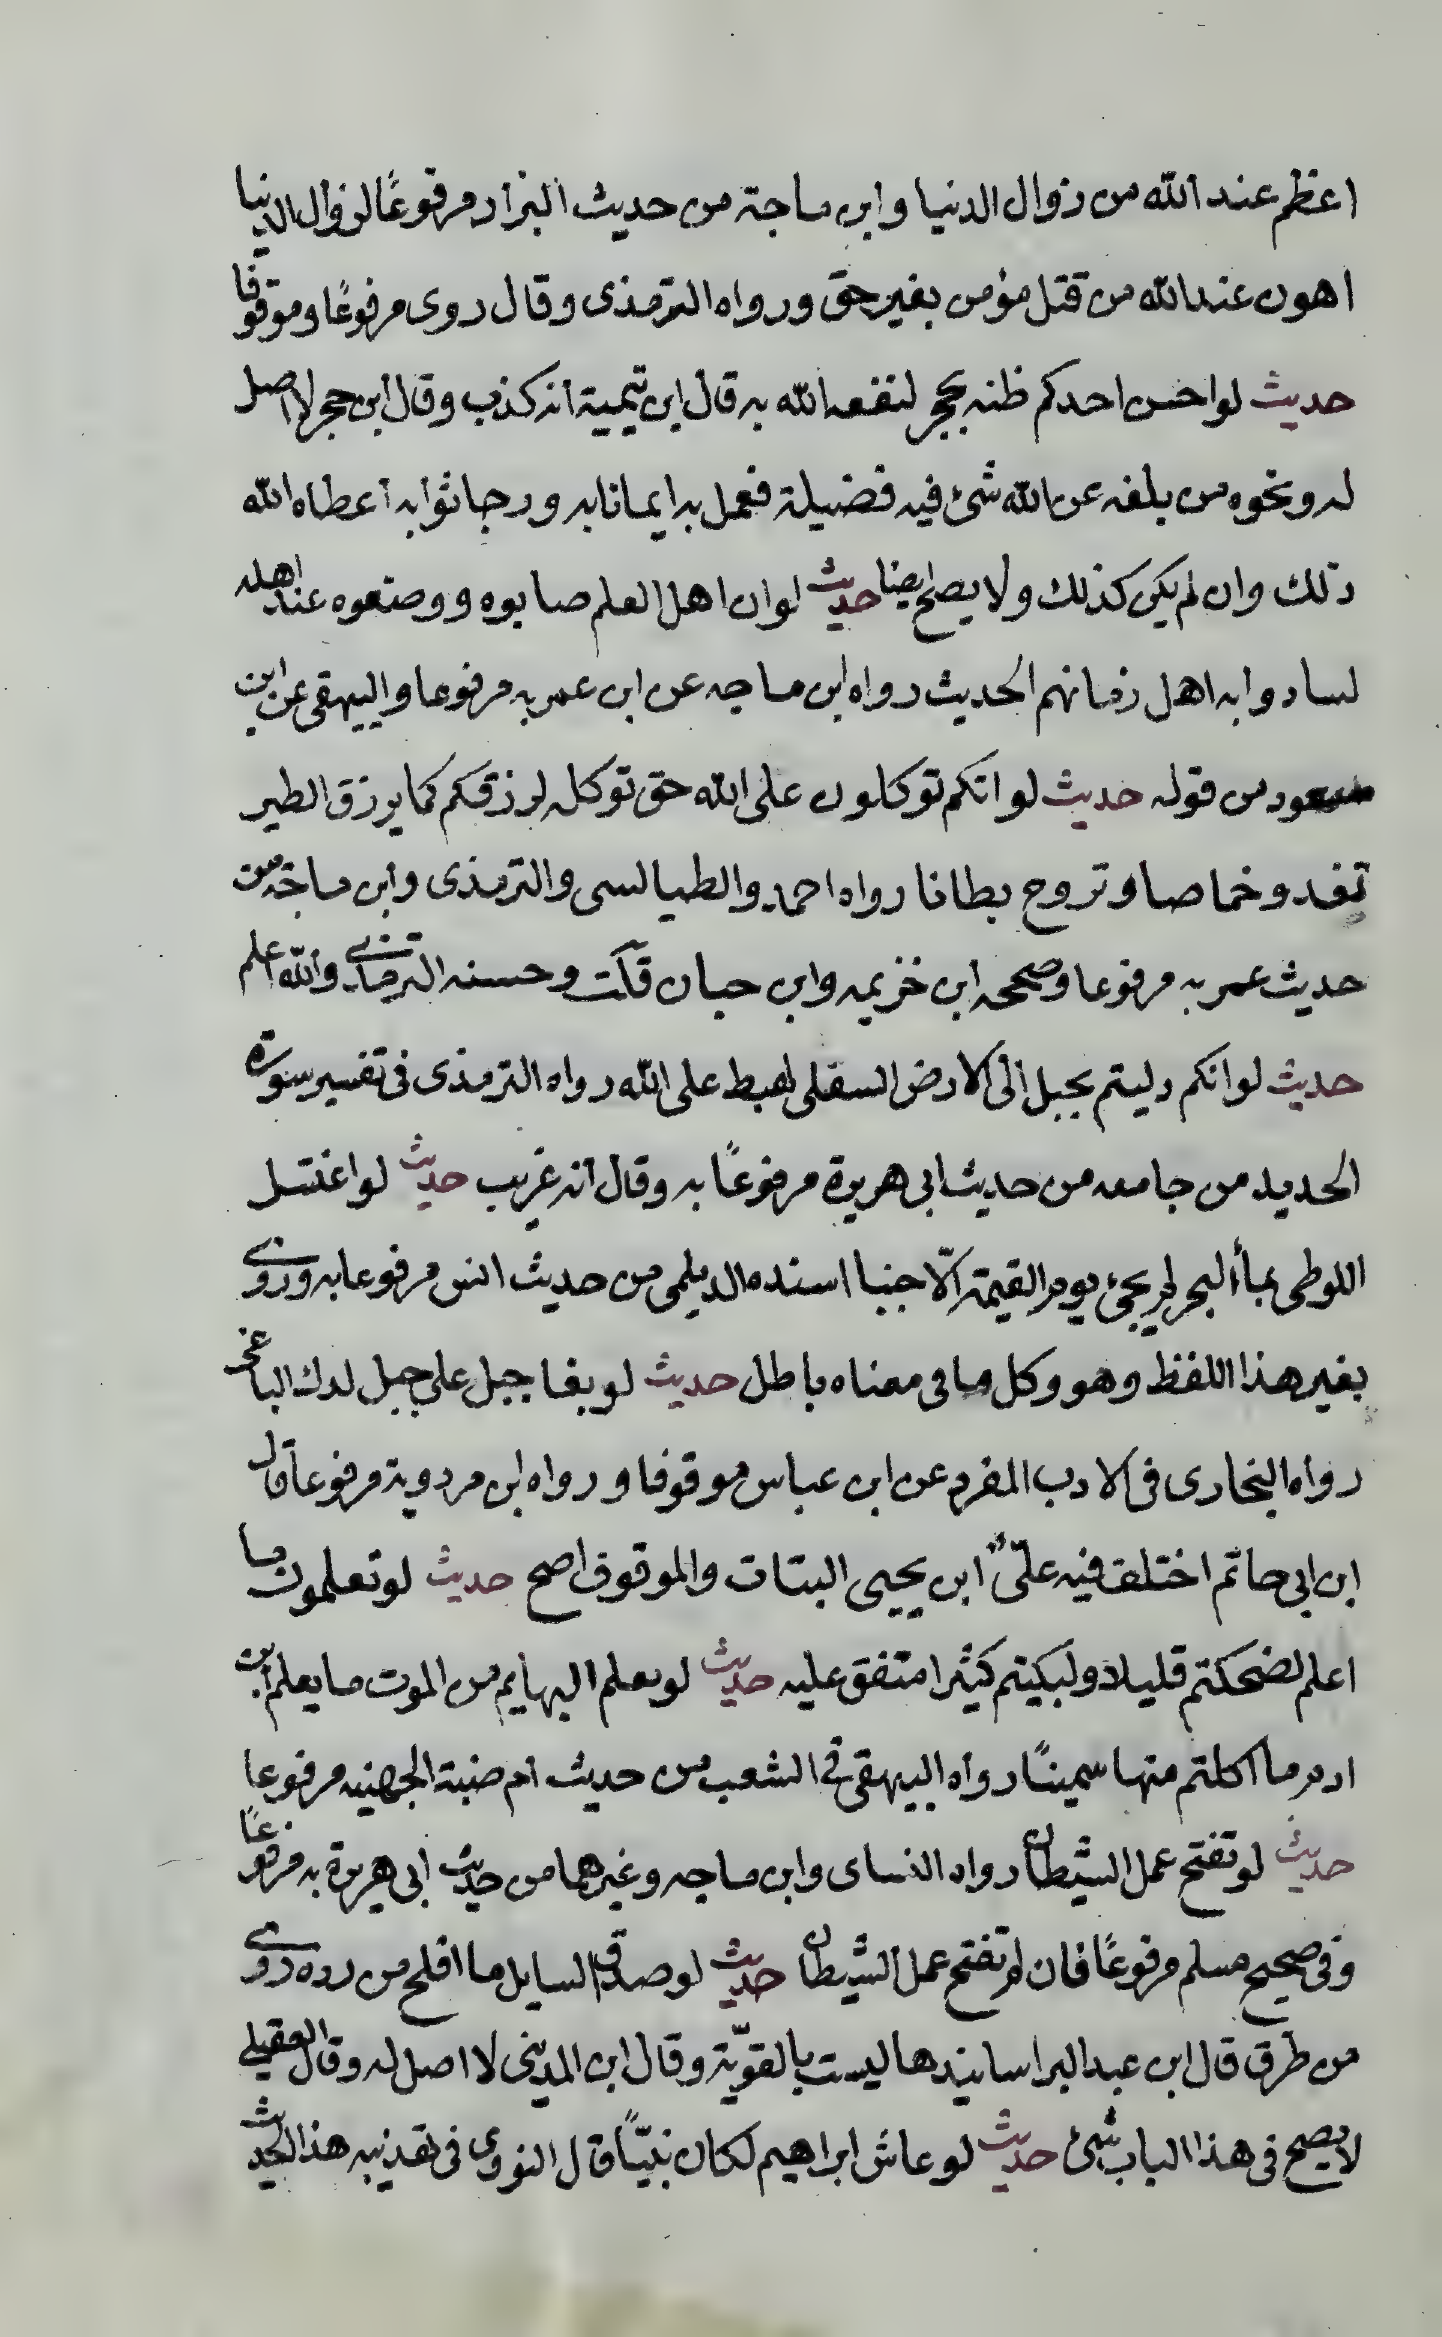 اعظم عند الله من زوال الدنيا وابن ماجة من حديث البزار مرفوعًا لزوال الدنيا
اهون عند الله من قتل مؤمن بغير حق ورواه الترمذى وقال روى مرفوعًا وموقوفا
حديث لو احسن احدكم ظنه بحجر لنفعه الله به قال ابن تيمية انه كذب وقال ابن حجر لا اصل
له ونحوه من بلغه عن الله شئ فيه فضيلة فعمل به ايمانا به ورجا ثوابه اعطاه الله
ذلك وان لم يكن كذلك ولا يصلح ايضا حديث لوان اهل العلم صابوه ووضعوه عند اهله
لسادوا به اهل زمانهم الحديث رواه ابن ماجه عن ابن عمر به مرفوعا والبيهقى عن ابن
مسعود من قوله حديث لو انكم توكلون على الله حق توكله لرزقكم كما يرزق الطير
تغدو خماصا وتروح بطانا رواه احمد والطيالسى والترمذى وابن ماجة من
حديث عمر به مرفوعا وصححه ابن خزيمه وابن حبان قلت وحسنه الترمذى والله اعلم
حديث لو انكم دليتم بحبل الى الارض السفلى لهبط على الله رواه الترمذى فى تفسير سورة
الحديد من جامعه من حديث ابى هريرة مرفوعًا به وقال انه غريب حديث لو اغتسل
اللوطى بماء البحر لم يجئ يوم القيمة الّا جنبا اسنده الديلمى من حديث انس مرفوعا به وروى
بغير هذا اللفظ وهو وكل ما فى معناه باطل حديث لو بغا جبل على جبل لدك الباغى
رواه البخارى فى الادب المفرد عن ابن عباس موقوفا ورواه ابن مردوية مرفوعا قال
ابن ابى حاتم اختلف فيه علىّ ابن يحيى البتات والموقوف اصح حديث لو تعلمون ما
اعلم لضحكتم قليلا ولبكيتم كثيرا متفق عليه حديث لو يعلم البهايم من الموت ما يعلم ابن
ادم ما اكلتم منها سمينًا رواه البيهقى فى الشعب من حديث ام ضبة الجهنيه مرفوعا
حديث لو تفتح عمل الشيطان رواه النساى وابن ماجه وغيرهما من حديث ابى هريرة به مرفوعًا
وفى صحيح مسلم مرفوعًا فان لو تفتح عمل الشيطان حديث لو صدق السايل ما افلح من رده روى
من طرق قال ابن عبد البر اسانيدها ليست بالقويّة وقال ابن المدينى لا اصل له وقال العقيلى
لا يصح فى هذا الباب شئ حديث لو عاش ابراهيم لكان نبيّا قال النووى فى تهذيبه هذا الحديث